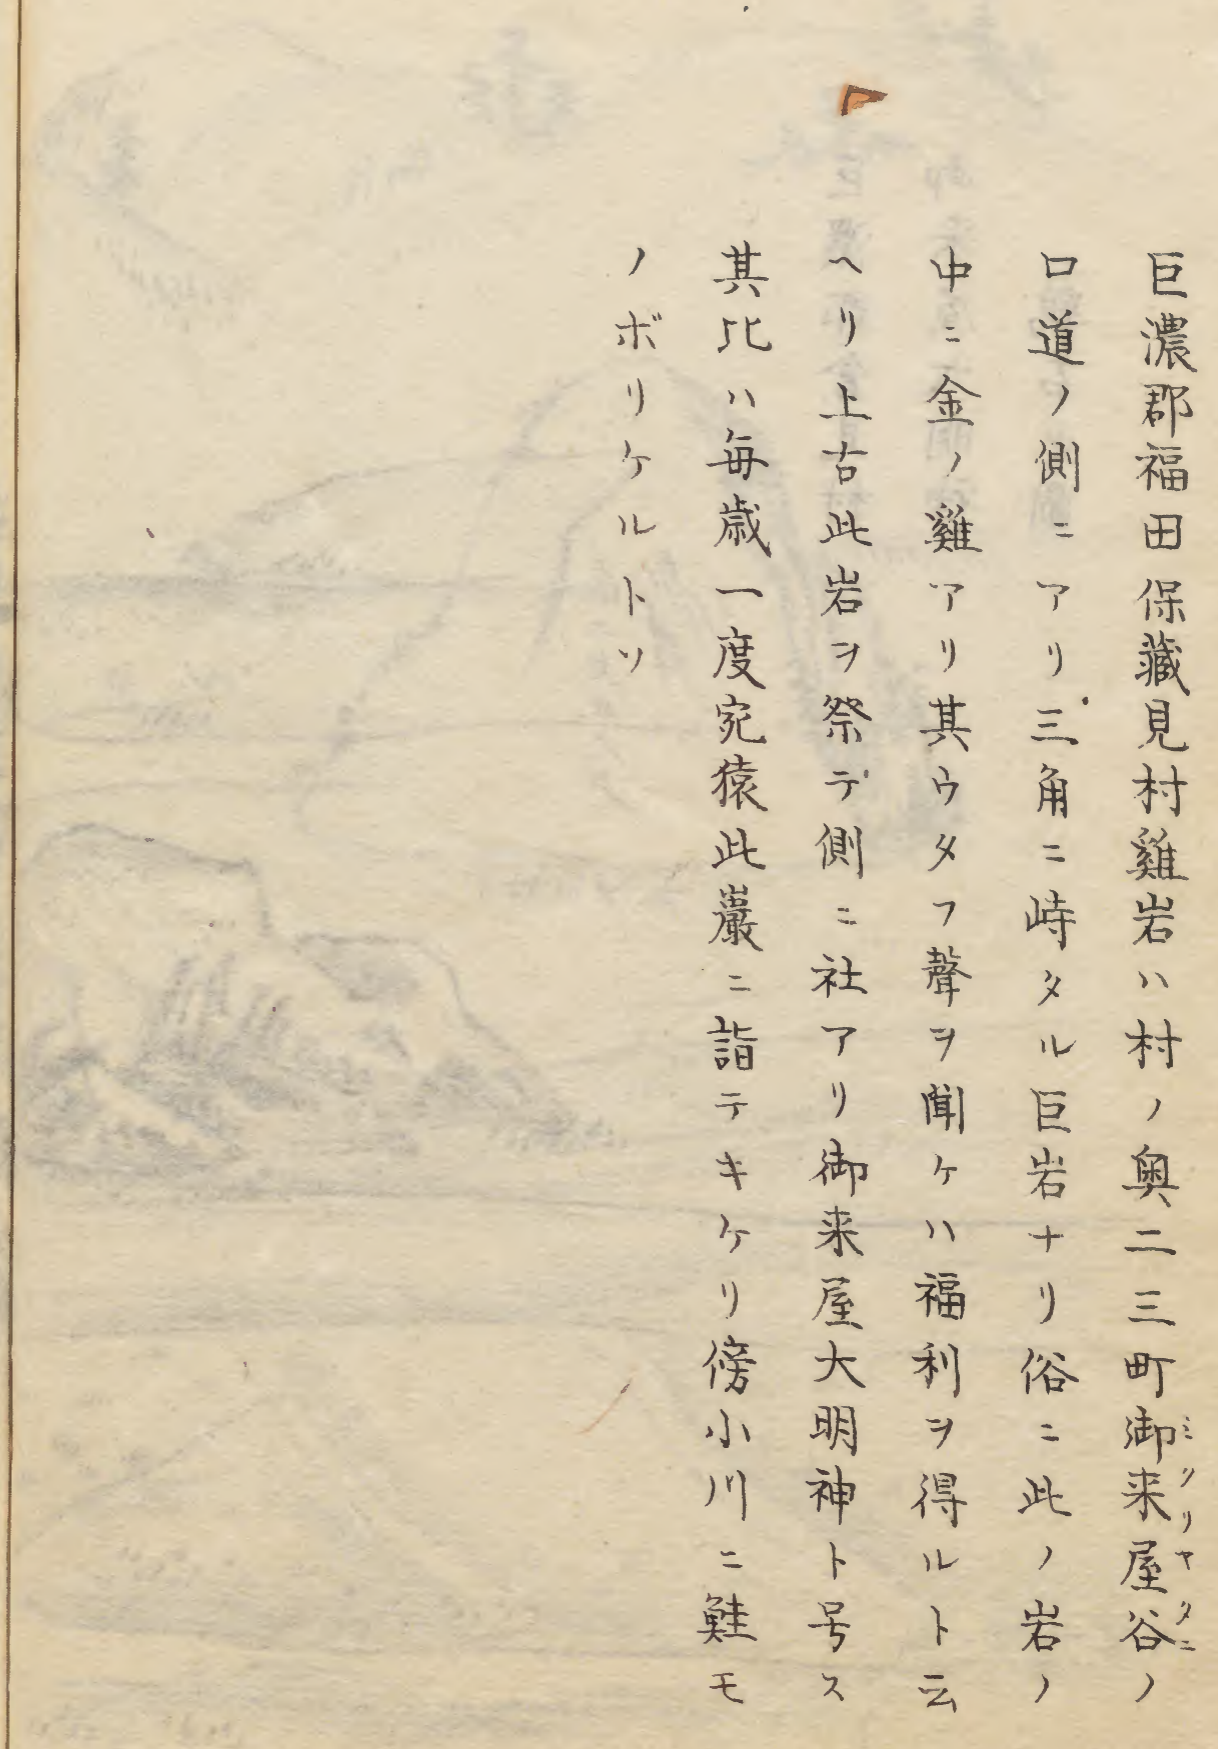 巨濃郡福田保蔵見村雞岩ハ村ノ奥二三町御来屋谷ノ
ミクリヤタニ
口道ノ側ニアリ三角ニ峙タル巨岩ナリ俗ニ此ノ岩ノ
中ニ金ノ雞アリ其ウタフ聲ヲ聞ケハ福利ヲ得ルト云
ヘリ上古此岩ヲ祭テ側ニ社アリ御来屋大明神ト号ス
其比ハ毎歳一度宛猿此巖ニ詣テキケリ傍小川ニ鮭モ
ノボリケルトソ